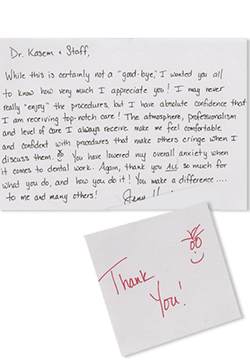 Dr. Kasem + Staff,
While this is certainly not a "good-bye," I wanted you all
to know how very much I appreciate you! I may never
really "enjoy" the procedures, but I have absolute confidence that
I am receiving top-notch care! The atmosphere, professionalism
and level of care I always receive make me feel comfortable
and confident with procedures that make others cringe when I
discuss them. You have lowered my overall anxiety when
it comes to dental work. Again, thank you ALL so much for
what you do, and how you do it! You make a difference....
to me and many others!
Thank
You!